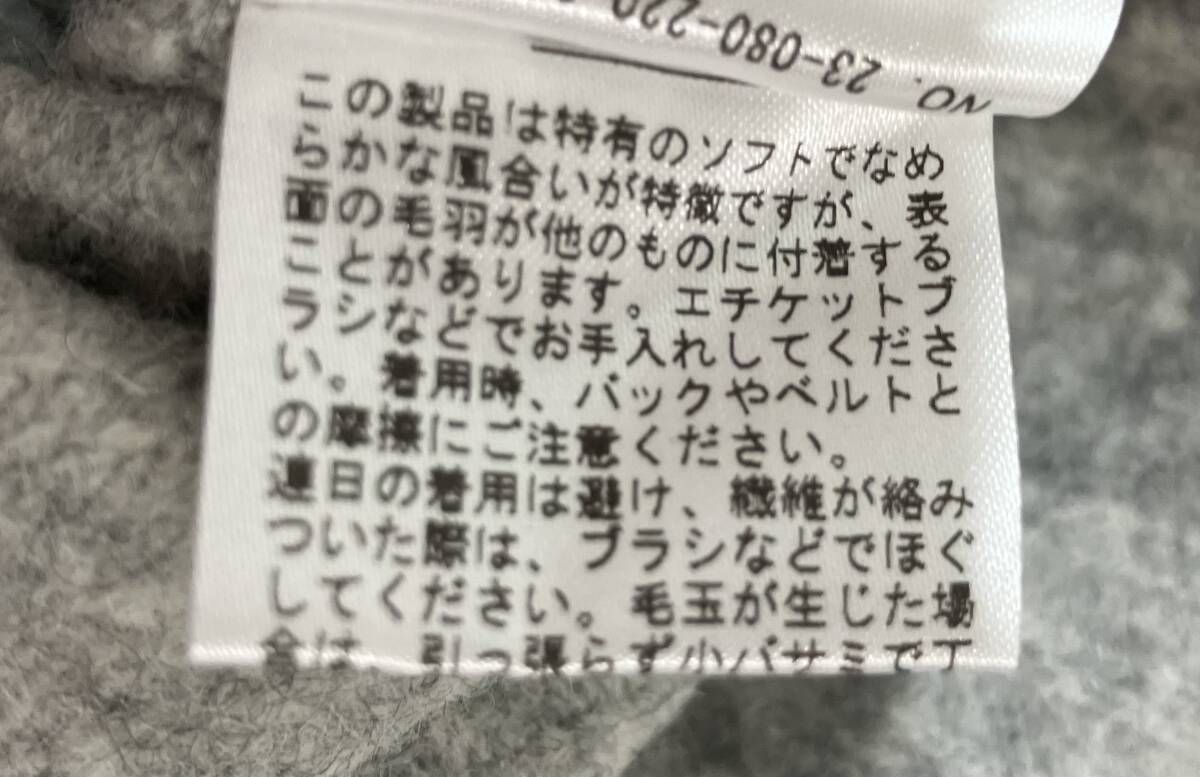 NO. 23-080-220
この製品は特有のソフトでなめ
らかな風合いが特徴ですが、表
面の毛羽が他のものに付着する
ことがあります。エチケットブ
ラシなどでお手入れしてくださ
い。着用時、バックやベルトと
の摩擦にご注意ください。
連日の着用は避け、繊維が絡み
ついた際は、ブラシなどでほぐ
してください。毛玉が生じた場
合は、引っ張らず小バサミで丁